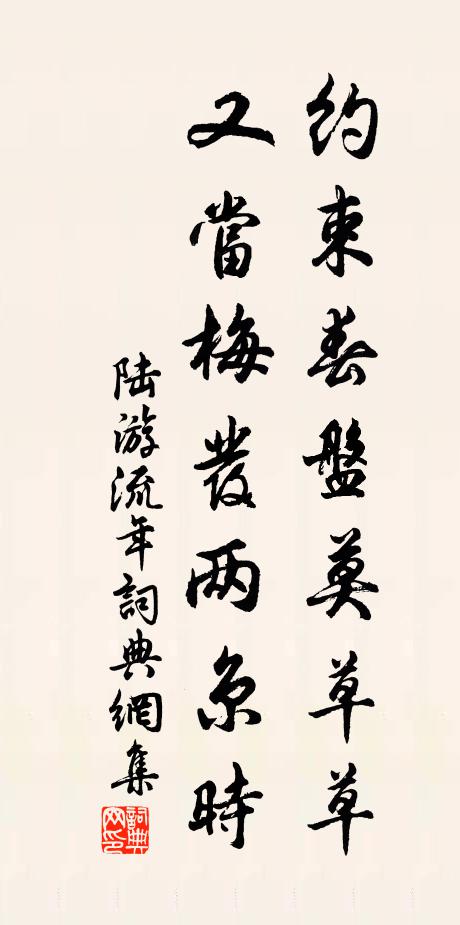 約束春盤莫草草
又當梅發两京時
陆游流年詞典網集
詞典网印